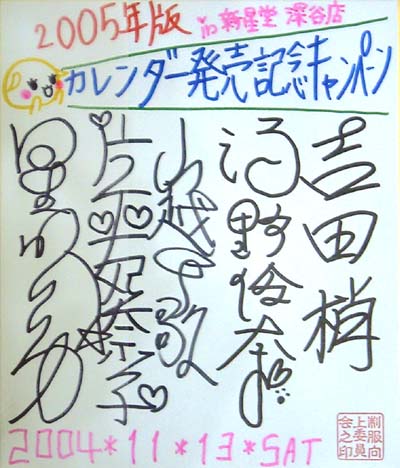 2005年版 in 新星堂 深谷店
カレンダー発売記念キャンペーン
吉田梢
河野
山越
♡片平♡妃奈子♡
2004*11*13*SAT
制服向
上委員
会之印